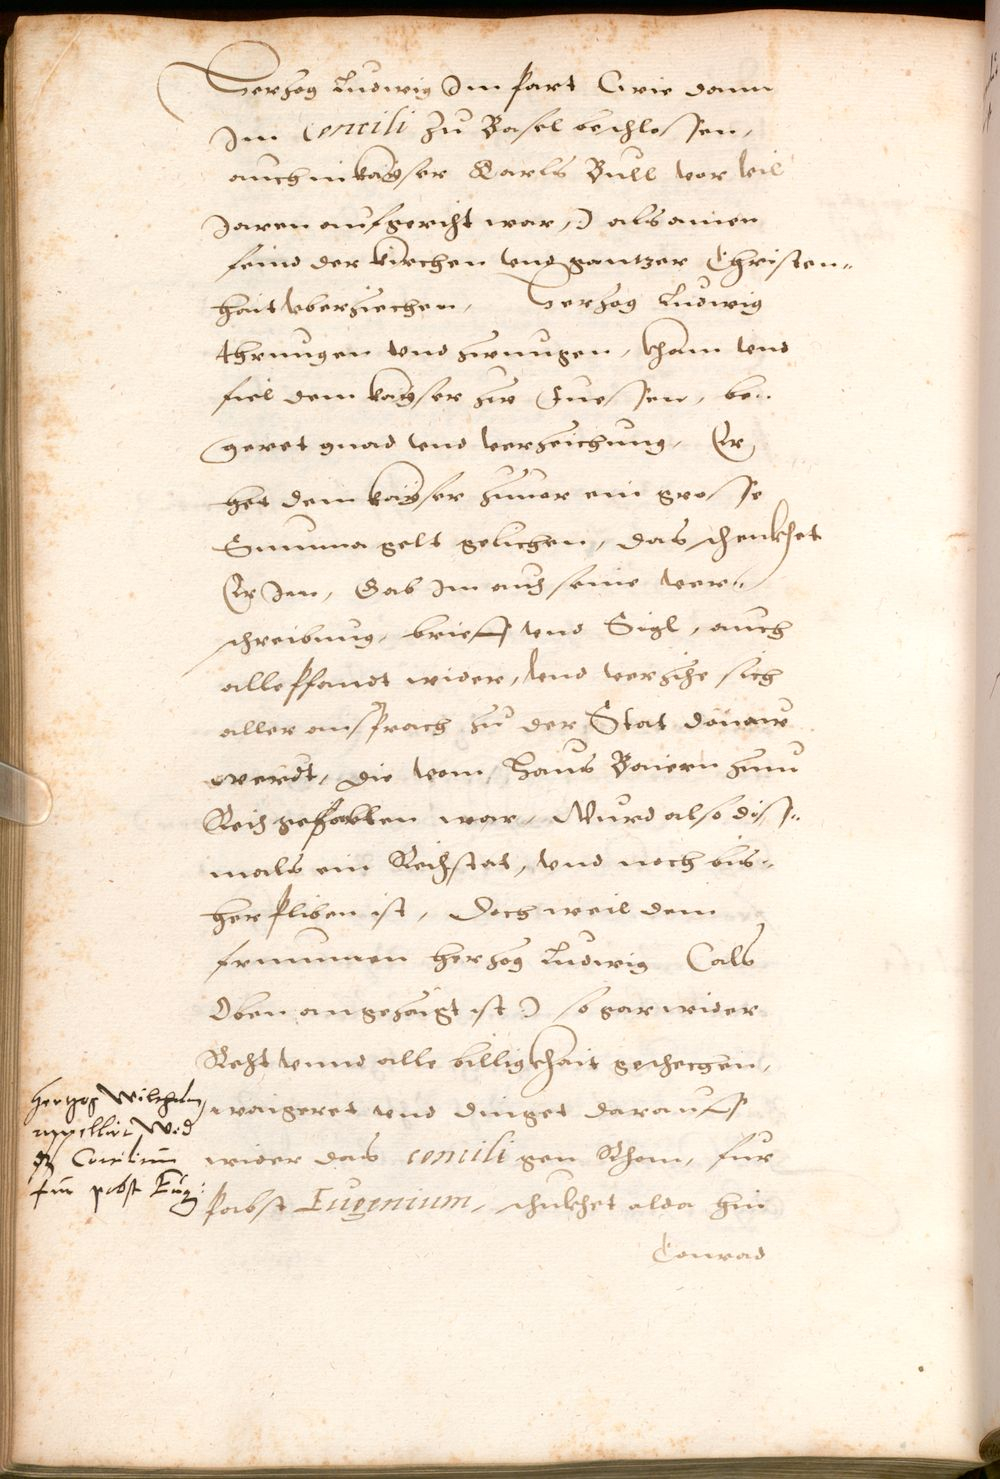 Herzog Ludwig Im hart (wie dann
Im Concili zu Basel beschlossen,
auch in kayser Karls Bull vor vil
Jaren aufgericht war,) als ainen
feind der kirchen vnd gantzer Christen=
hait vberziechen, Herzog Ludwig
thrungen vnd zwungen, kham vnd
fiel dem kayser zw Fuessen, be=
geret gnad vnd verzeichung, Er
het dem kayser zuuor ein grosse
Summa gelt gelichen, das schenkhet
Er Im, Gab Im auch seine ver=
schreibung, brieff vnd Sigl, auch
alle pfandt wider, vnd verzihe sich
aller ansprach zu der Stat Donaw
werdt, die vom Haus Baiern zum
Reich gefallen war, Wurd also diss=
mals ein Reichstat, vnd noch bis=
her pliben ist, Doch weil dem
frummen herzog Ludwig (als
Oben angezeigt ist) so gar wider
Recht vnnd alle billigkhait geschechen,
waigeret vnd dinget darauff
wider das concili gen Rhom, fur
Pabst Eugenium, schukhet alda hin
Conrad
Hertzog Wilhelm
appelliert Wid
dz Concilium
fur pabst Eug: